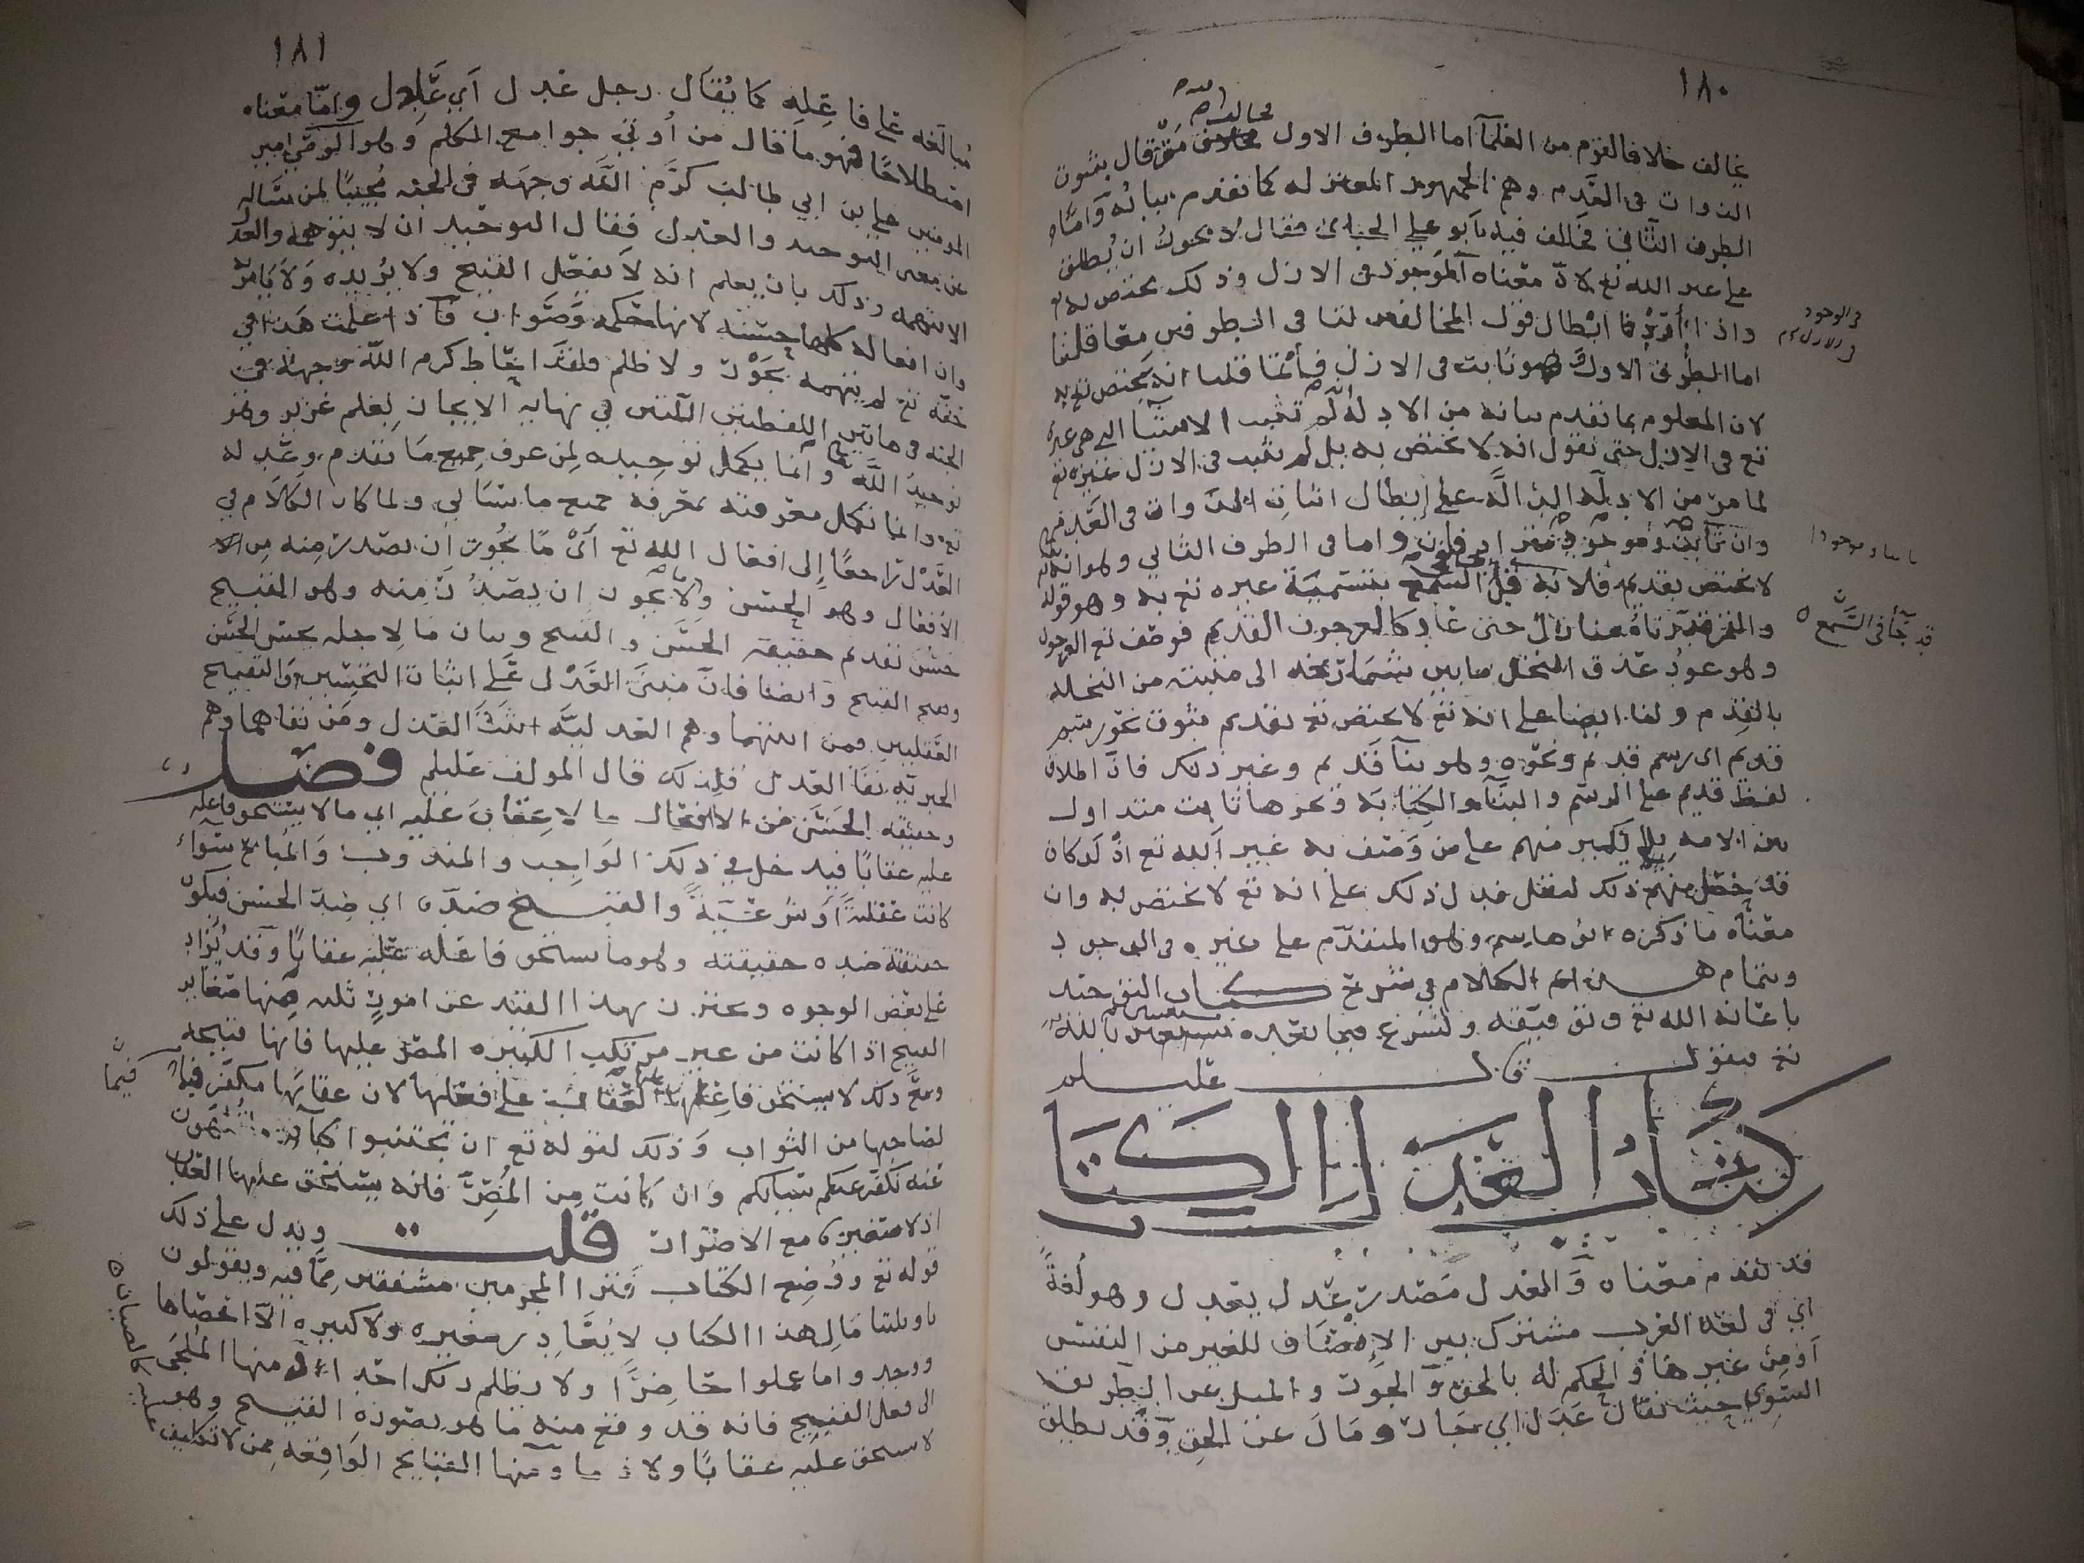 ١٨٠
يخالف خلافا لقوم من العلما اما الطرف الاول فخالف من قال بثبوت
الذوات في القدم وهم الجمهور المعتزله كما تقدم بيانه وامّا
الطرف الثاني فخالف فيه ابو علي الجبائي فقال لا يجوز ان يطلق
على غير الله تع لانّ معناه الموجود في الازل وذلك يختص به تع
واذا أردنا ابطال قول المخالفين لنا في الطرفين معا قلنا
اما الطرف الاول وهو ثابت في الازل فانما قلنا انه يختص تع به
لان المعلوم بما تقدم بيانه من الادله انه لم تثبت الاشيا التي هي غيره
تع في الازل حتى نقول انه لا يختص به بل لم يثبت في الازل غيره تع
لما مرّ من الادلّه الدالّه على إبطال اثبات الذوات في القدم
وان ثابت وموجود وامّا في الطرف الثاني وهو انه تع
لا يختص بقديم فلانه قد جآ في السمع بتسمية غيره تع به وهو قوله
والقمر قدّرناه منازل حتى عاد كالعرجون القديم فوصف تع العرجون
وهو عود عذق النخل ما بين شماريخه الى منبته من النخله
بالقدم ولنا ايضا على انه تع لا يختص تع بقديم ثبوت نحو رسم
قديم اي رسم قديم ونحوه وهو بنآ قديم وغير ذلك فانّ اطلاق
لفظ قديم على الرسم والبنآ والكتابه ونحوها ثابت متداول
بين الامه بلا نكير منهم على من وصف به غير الله تع اذ لو كان
قد حصل منهم ذلك لنقل فدل ذلك على انه تع لا يختص به وان
معناه ما ذكره وهو المتقدّم على غيره في الوجود
وبتمام هذه الكلام في شرح كتاب التوحيد
باعانة الله تع وتوفيقه ولنشرع فيما بعده مستعينين بالله
تع فنقول قال عليلم
كتاب العدل الكتاب
قد تقدم معناه والعدل مصدر عدل يعدل وهو لغةً
اي في لغة العرب مشترك بين الإنصاف للغير من النفس
أو من غيرها والحكم له بالحق والجور والميل عن الطريق
السويّ حيث يقال عدل اي جار ومال عن الحق وقد يطلق
في الوجود
قد جآ في السّمع
١٨١
مبالغه على فاعله كما يقال رجل عدل أي عادل وامّا معناه
اصطلاحًا فهو ما قال من أوتي جوامع الكلم وهو الوصي امير
المومنين علي بن ابي طالب كرّم الله وجهه في الجنه مجيبًا لمن سأله
عن معنى التوحيد والعدل فقال التوحيد ان لا تتوهمه والعدل
الا تتهمه وذلك بان يعلم انه لا يفعل القبيح ولا يريده ولا يامر به
وان افعاله كلها حسنه لانها حكمه وصواب فاذا علمت هذا في
حقه تع لم تتهمه بجور ولا ظلم فلقد احاط كرم الله وجهه في
الجنه في هاتين اللفظتين اللتين في نهاية الايجاز بعلم غزير وهو
توحيد الله وانما يكمل توحيده لمن عرف جميع ما تقدم وعدله
تع وانما تكمل معرفته بمعرفة جميع ما سيأتي ولما كان الكلام في
العدل راجعًا إلى افعال الله تع أيّ ما يجوز ان يصدر منه من
الأفعال وهو الحسن ولا يجوز ان يصدر منه وهو القبيح
حسن تقديم حقيقة الحسن والقبيح وبيان ما لاجله يحسن الحسن
ويقبح القبيح وايضا فانّ مبنى العدل على اثبات التحسين والتقبيح
العقليين فمن اثبتهما وهم العدليّه اثبت العدل ومن نفاهما وهم
الجبريّه نفا العدل فلذلك قال المولف عليلم فصل
وحقيقة الحسن من الافعال ما لا عقاب عليه اي ما لا يستحق فاعله
عليه عقابًا فيدخل في ذلك الواجب والمندوب والمباح سواء
كانت عقليةً أو شرعيّةً والقبيح ضدّه اي ضدّ الحسن فيكون
حقيقة ضده حقيقته وهو ما يستحق فاعله عليه عقابًا وقد يزاد
على بعض الوجوه ويحترز بهذا القيد عن امورٍ ثلثه منها صغاير
القبيح اذا كانت من غير مرتكب الكبيره المصرّ عليها فانها قبيحه
ومع ذلك لا يستحق فاعلها العقاب على فعلها لان عقابها مكفّر فيما
لصاحبها من الثواب وذلك لقوله تع ان تجتنبوا كبآئر ما تنهون
عنه نكفّر عنكم سياتكم وان كانت من المصرّ فانه يستحق عليها العقاب
اذ لا صغيره مع الاصرار قلت ويدل على ذلك
قوله تع ووُضع الكتاب فترا المجرمين مشفقين ممّا فيه ويقولون
يا ويلتنا مال هذا الكتاب لا يغادر صغيره ولا كبيره الّا احصاها
ووجدوا ما عملوا حاضرًا ولا يظلم ربك احدا ومنها الملجى
الى فعل القبيح فانه قد وقع منه ما هو بصورة القبيح وهو
لا يستحق عليه عقابًا ولا ذما ومنها القبايح الواقعه ممن لا تكليف
عليه كالصبيان
فيما